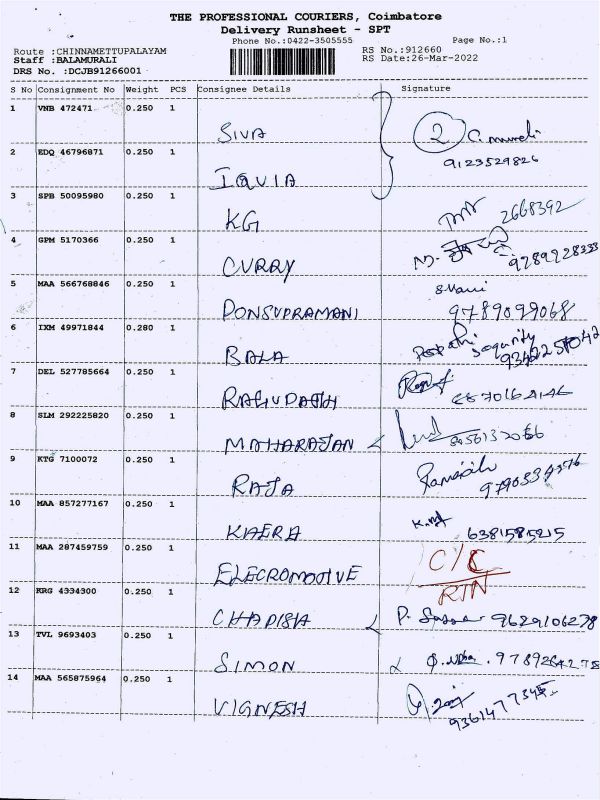 THE PROFESSIONAL COURIERS, Coimbatore
Delivery Runsheet - SPT
Phone No.:0422-3505555 Page No.:1
Route :CHINNAMETTUPALAYAM RS No.:912660
Staff :BALAMURALI RS Date:26-Mar-2022
DRS No. :DCJB91266001
S No Consignment No Weight PCS Consignee Details Signature
1 VNB 472471 0.250 1
SIVA 2 C. murali
9123529826
2 EDQ 46796871 0.250 1
IQVIA
3 SPB 50095980 0.250 1
KG 2668392
4 GPM 5170366 0.250 1
CURRY 9789228333
5 MAA 566768846 0.250 1
PONSUPRAMANI 9789099068
6 IXM 49971844 0.280 1
BALA
7 DEL 527785664 0.250 1
8 SLM 292225820 0.250 1
MAHARAJAN
9 KTG 7100072 0.250 1
RAJA
10 MAA 857277167 0.250 1
KAERA 6381585215
11 MAA 287459759 0.250 1
ELECROMOTIVE C/C
RTN
12 KRG 4334300 0.250 1
CHADISH P. 9629106278
13 TVL 9693403 0.250 1
SIMON
14 MAA 565875964 0.250 1
VIGNESH